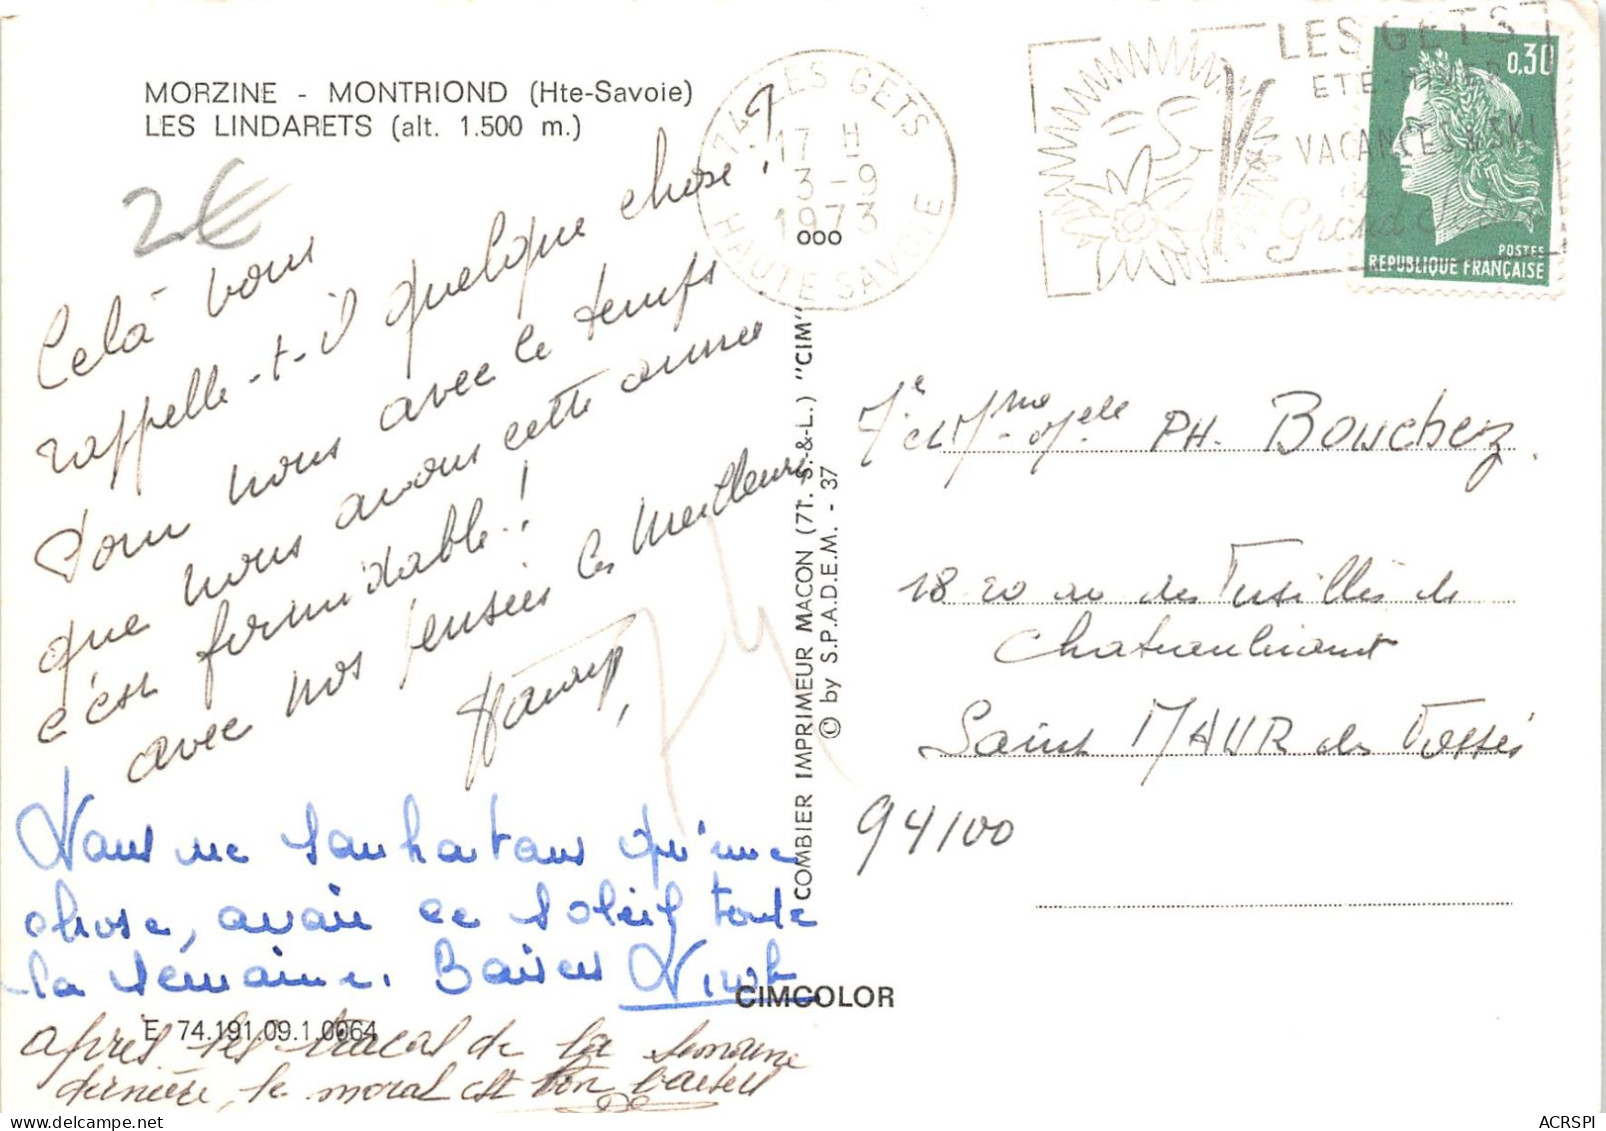 MORZINE - MONTRIOND (Hte-Savoie)
LES LINDARETS (alt. 1.500 m.)
2€
Celà vous
rappelle-t-il quelque chose ?
Pour nous avec le temps
que nous avons cette année
c'est formidable !
avec nos pensées les meilleures
Nous ne souhaitons qu'une
chose, avoir ce soleil toute
la semaine. Baisers
E 74.191.09.1.0064
CIMCOLOR
après les tracas de la semaine
dernière, le moral est bon baisers
COMBIER IMPRIMEUR MACON (71. S.-&-L.) "CIM"
© by S.P.A.D.E.M. - 37
74 LES GETS
17 H
3-9
1973
HAUTE SAVOIE
000
LES GETS
ETE-HIVER
VACANCES & SKI
Grand
0,30
POSTES
REPUBLIQUE FRANÇAISE
PH. Bouchez
18 20 av des Fusillés de
Chateaubriant
Saint MAUR des Fossés
94100
ACRSPI